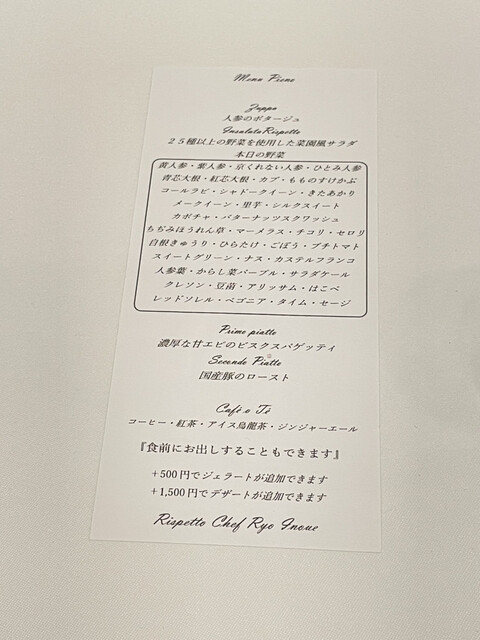 Menu Pieno
Zuppa
人参のポタージュ
Insalata Rispetto
２５種以上の野菜を使用した菜園風サラダ
本日の野菜
黄人参・紫人参・京くれない人参・ひとみ人参・
青芯大根・紅芯大根・カブ・もものすけかぶ
コールラビ・シャドークイーン・きたあかり
メークイーン・里芋・シルクスイート
カボチャ・バターナッツスクワッシュ
ちぢみほうれん草・マーメラス・チコリ・セロリ
白根きゅうり・ひらたけ・ごぼう・プチトマト
スイートグリーン・ナス・カステルフランコ
人参葉・からし菜パープル・サラダケール
クレソン・豆苗・アリッサム・はこべ
レッドソレル・ベゴニア・タイム・セージ
Primo piatto
濃厚な甘エビのビスクスパゲッティ
Secondo Piatto
国産豚のロースト
Café o Té
コーヒー・紅茶・アイス烏龍茶・ジンジャーエール
『食前にお出しすることもできます』
＋500円でジェラートが追加できます
＋1,500円でデザートが追加できます
Rispetto Chef Ryo Inoue